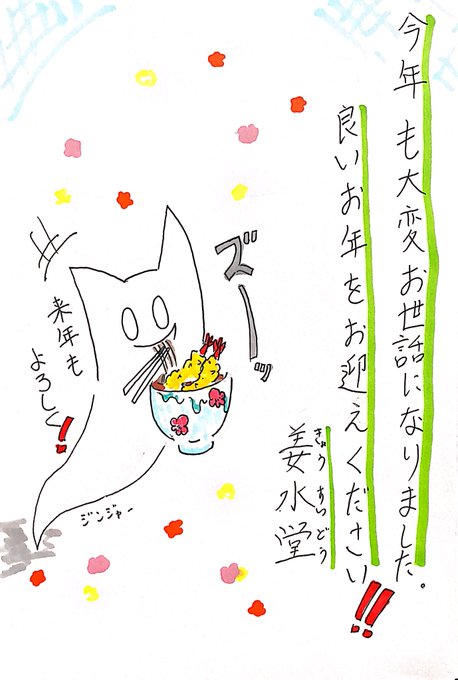 今年も大変お世話になりました。
良いお年をお迎えください!!
きょうすいどう
姜水堂
ズーッ
来年も
よろしく!
ジンジャー